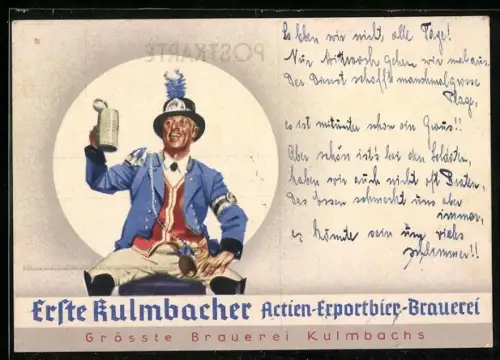 POSTKARTE
So leben wir nicht, alle Tage!
Nur Mittwoch gehen wir mal aus.
Der Dienst schafft manchmal grosse
Plage,
es ist mitunter schon ein Graus!!
Aber schön ist's bei den Soldaten,
haben wir auch nicht oft Braten,
Das Essen schmeckt uns aber
immer,
es könnte sein um vieles
schlimmer!!
Erste Kulmbacher Actien-Exportbier-Brauerei
Grösste Brauerei Kulmbachs